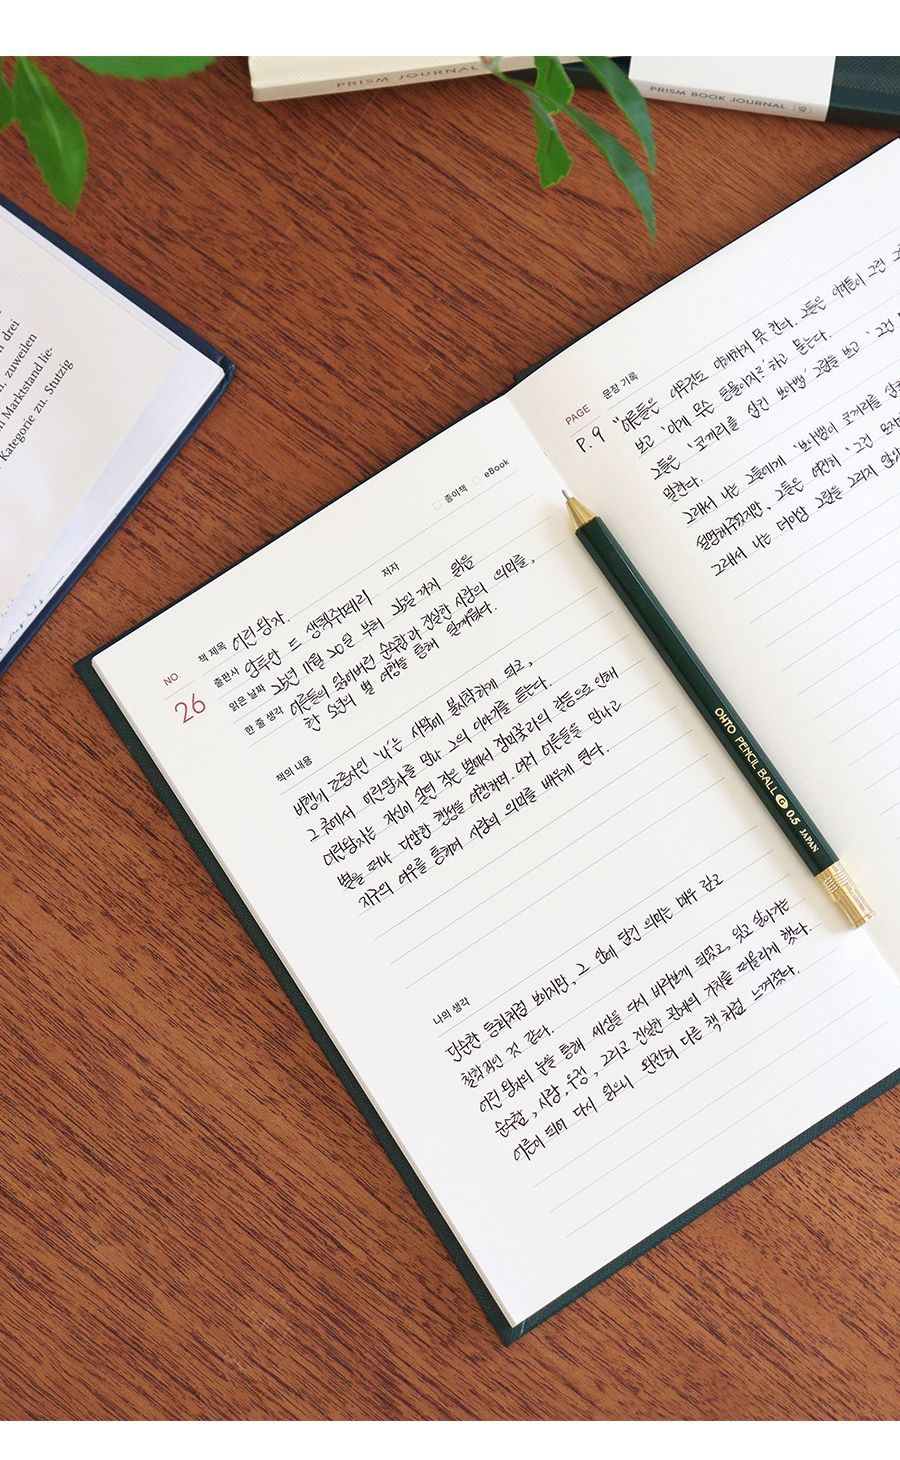 PRISM JOURNAL
PRISM BOOK JOURNAL
drei
zuweilen
Marktstand lie-
Kategorie zu. Stutzig
종이책 eBook
NO. 26
책 제목 어린왕자 저자
출판사 앙투안 드 생텍쥐페리
읽은 날짜 25년 11월 20일 부터 25일 까지 읽음
한 줄 생각 어른들의 잃어버린 순수함과 진실한 사랑의 의미를,
한 소년의 별 여행을 통해 일깨웠다.
책의 내용
비행기 조종사인 '나'는 사막에 불시착하게 되고,
그 곳에서 어린왕자를 만나 그의 이야기를 듣는다.
어린왕자는 자신이 살던 작은 별에서 장미꽃과의 갈등으로 인해
별을 떠나 다양한 행성을 여행하며, 여러 어른들을 만나고
지구의 여우를 통하여 사랑의 의미를 배우게 된다.
나의 생각
단순한 동화처럼 보이지만, 그 안에 담긴 의미는 매우 깊고
철학적인 것 같다.
어린 왕자의 눈을 통해 세상을 다시 바라보게 되었고, 잊고 살아가는
순수함, 사랑, 우정, 그리고 진실한 관계의 가치를 떠올리게 했다.
어른이 되어 다시 읽으니 완전히 다른 책 처럼 느껴졌다.
PAGE 문장 기록
P. 9 "어른들은 아무것도 이해하지 못 한다. 그들은 아이들이 그린
보고 '이게 무슨 동물이지?' 하고 묻는다.
그들은 '코끼리를 삼킨 보아뱀' 그림을 보고
말한다.
그래서 나는 그들에게 '보아뱀이 코끼리를
설명해주었지만, 그들은 여전히 '그건 모자
그래서 나는 더이상 그림을 그리지
OHTO PENCIL BALL G 0.5 JAPAN